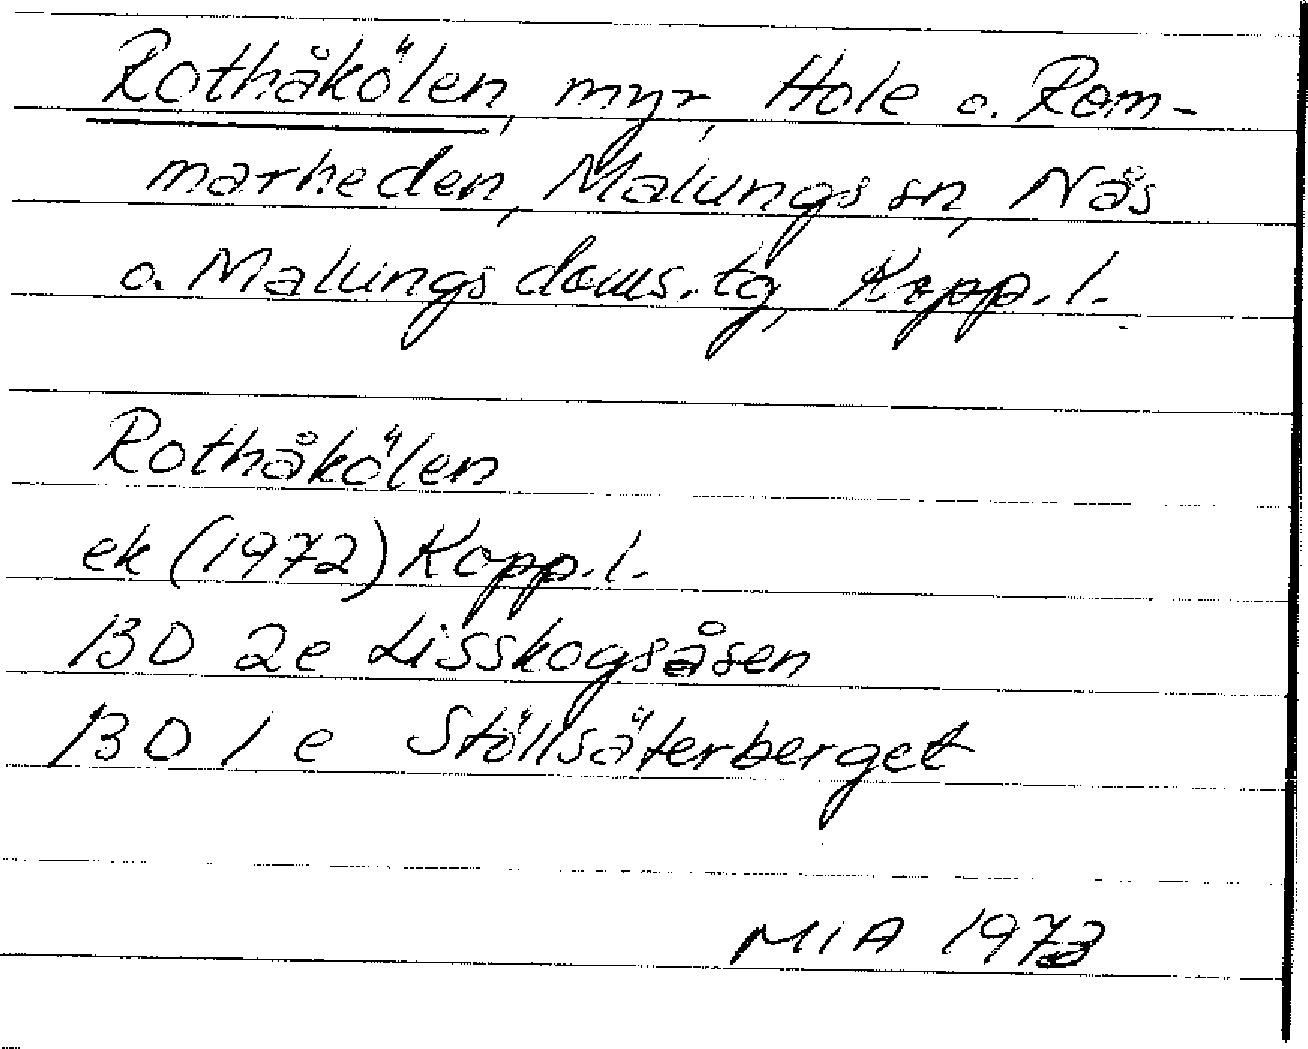 Rothåkölen, myr, Hole o. Rom-
marheden, Malungs sn, Nås
o. Malungs doms.tg, Kopp.l.
Rothåkölen
ek (1972) Kopp.l.
13D 2e Lisskogsåsen
13D 1e Störlsäterberget
MIA 1973